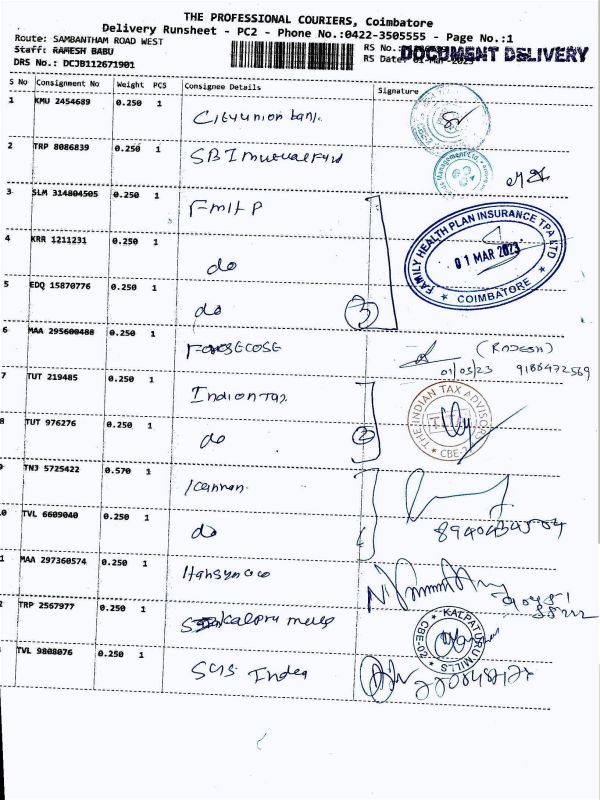 THE PROFESSIONAL COURIERS, Coimbatore
Delivery Runsheet - PC2 - Phone No.:0422-3505555 - Page No.:1
Route: SAMBANTHAM ROAD WEST
Staff: RAMESH BABU
DRS No.: DCJB112671901
RS No.:
RS Date: 01-Mar-2023
DOCUMENT DELIVERY
S No Consignment No Weight PCS Consignee Details Signature
1 KMU 2454689 0.250 1 City union bank
2 TRP 8086839 0.250 1 SBI mutual Fund
Management Ltd.
3 SLM 314804505 0.250 1 FMHP
FAMILY HEALTH PLAN INSURANCE TPA LTD
01 MAR 2023
COIMBATORE
4 KRR 1211231 0.250 1 do
5 EDQ 15870776 0.250 1 do
3
6 MAA 295600488 0.250 1
(RAJESH)
01/03/23
7 TUT 219485 0.250 1 Indian Tax
THE INDIAN TAX ADVISOR
CBE-2
8 TUT 976276 0.250 1 do
2
9 TNJ 5725422 0.570 1 Kannan
0 TVL 6609040 0.250 1 do
1 MAA 297360574 0.250 1
2 TRP 2567977 0.250 1 kalpru mills
KALPATURU MILLS
CBE-20
TVL 9808076 0.250 1 SGS India